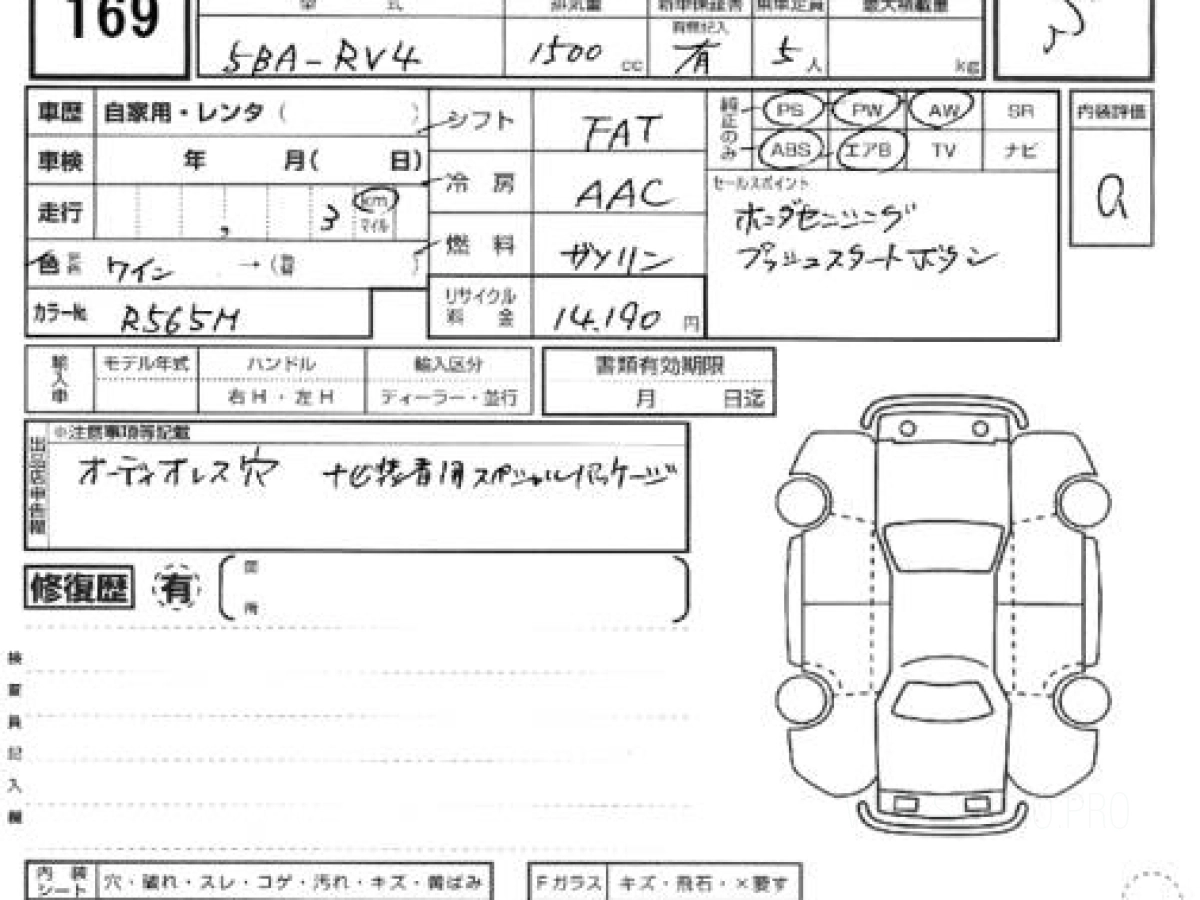 169
型 式 排気量 新車保証書 乗車定員 最大積載量
有無記入
5BA-RV4 1500 cc 有 5 人 kg
車歴 自家用・レンタ ( )
車検 年 月( 日)
走行 , 3 km マイル
色 ワイン →( )
カラー№ R565M
シフト FAT
冷房 AAC
燃料 ガソリン
リサイクル料金 14.190 円
純正のみ PS PW AW SR
ABS エアB TV ナビ
セールスポイント
ホンダセンシング
プッシュスタートボタン
内装評価
a
輸入車 モデル年式 ハンドル 輸入区分
右H・左H ディーラー・並行
書類有効期限
月 日迄
出品店申告欄
※注意事項等記載
オーディオレス穴 ナビ装着用スペシャルパッケージ
修復歴 有
検査員記入欄
内装シート 穴・破れ・スレ・コゲ・汚れ・キズ・黄ばみ
Fガラス キズ・飛石・×要す
.PRO